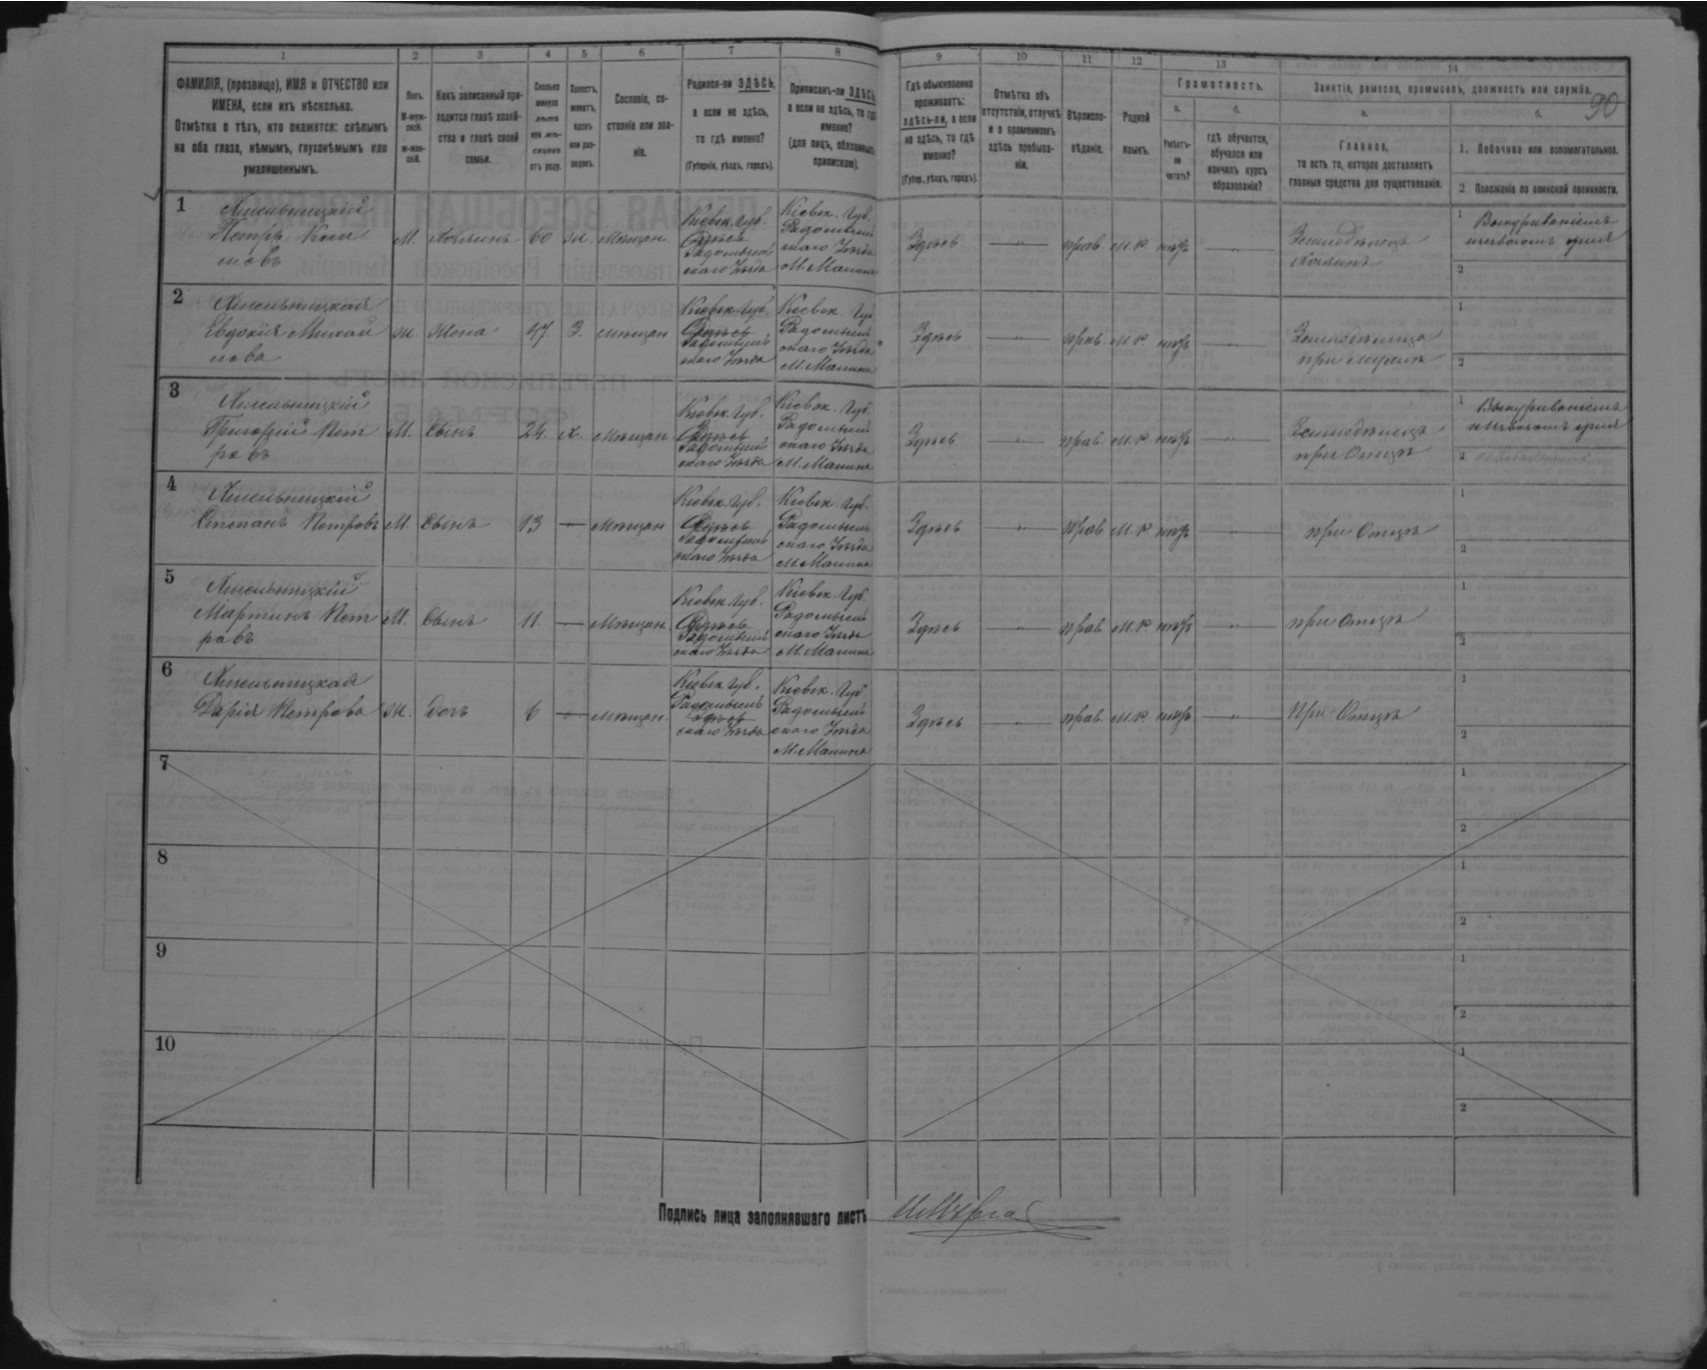 1
2
3
4
5
6
7
8
9
10
11
12
13
14
ФАМИЛІЯ, (прозвище), ИМЯ и ОТЧЕСТВО или
ИМЕНА, если ихъ нѣсколько.
Отмѣтка о тѣхъ, кто окажется: слѣпымъ
на оба глаза, нѣмымъ, глухонѣмымъ или
умалишеннымъ.
Полъ.
М-муж-
ской.
Ж-жен-
скій.
Какъ записанный при-
ходится главѣ хозяй-
ства и главѣ своей
семьи.
Сколько
минуло
лѣтъ
или мѣ-
сяцевъ
отъ роду.
Холостъ,
женатъ,
вдовъ
или раз-
веденъ.
Сословіе, со-
стояніе или зва-
ніе.
Родился-ли ЗДѢСЬ,
а если не здѣсь,
то гдѣ именно?
(Губернія, уѣздъ, городъ).
Приписанъ-ли ЗДѢСЬ,
а если не здѣсь, то гдѣ
именно?
(для лицъ, обязанныхъ
припискою).
Гдѣ обыкновенно
проживаетъ:
здѣсь-ли, а если
не здѣсь, то гдѣ
именно?
(Губер., уѣздъ, городъ).
Отмѣтка объ
отсутствіи, отлучкѣ
и о временномъ
здѣсь пребыва-
ніи.
Вѣроиспо-
вѣданіе.
Родной
языкъ.
Грамотность.
а.
б.
Умѣетъ-
ли
читать?
гдѣ обучается,
обучался или
кончилъ курсъ
образованія?
Занятіе, ремесло, промыселъ, должность или служба.
90
а.
б.
Главное,
то есть то, которое доставляетъ
главныя средства для существованія.
1. Побочное или вспомогательное.
2 Положеніе по воинской повинности.
1
Хмельницкій
Петръ
М. Хозяинъ 60 ж. Мѣщан.
Кіевск. Губ.
Здѣсь
Радомысль
скаго Уѣзда
Кіевск. Губ.
Радомысль
скаго Уѣзда
М. Малина
Здѣсь — прав. м.р. нѣтъ —
Земледѣлецъ
Хозяинъ
1
2
2
Хмельницкая
Евдокія Михай
лова
ж Жена 47 З. мѣщан
Кіевск. Губ.
Здѣсь
Радомысль
скаго Уѣзда
Кіевск. Губ
Радомысль
скаго Уѣзда
М. Малина
Здѣсь — прав. м.р нѣтъ —
Земледѣлица
при мужѣ
1
2
3
Хмельницкій
Григорій Пет
ровъ
М. Сынъ 24. х. мѣщан
Кіевск. Губ.
Здѣсь
Радомысль
скаго Уѣзда
Кіевск. Губ.
Радомысль
скаго Уѣзда
М. Малина
Здѣсь — прав. м.р. нѣтъ —
Земледѣлецъ
при Отцѣ
1
2
4
Хмельницкій
Степанъ Петровъ М. Сынъ 13 — мѣщан
Кіевск. Губ.
Здѣсь
Радомысль
скаго Уѣзда
Кіевск. Губ.
Радомысль
скаго Уѣзда
М. Малина
Здѣсь — прав м.р нѣтъ —
при Отцѣ
1
2
5
Хмельницкій
Мартинъ Пет
ровъ
М. Сынъ 11. — Мѣщан.
Кіевск. Губ.
Здѣсь
Радомысль
скаго Уѣзда
Кіевск. Губ.
Радомысль
скаго Уѣзда
М. Малина
Здѣсь — прав м.р нѣтъ —
при Отцѣ
1
2
6
Хмельницкая
Дарія Петрова ж. Дочь 6 — мѣщан.
Кіевск. Губ.
Радомысль
здѣсь
скаго Уѣзда
Кіевск. Губ
Радомысль
скаго Уѣзда
М. Малина
Здѣсь — прав. м.р. нѣтъ —
При Отцѣ
1
2
7
1
2
8
1
2
9
1
2
10
1
2
Подпись лица заполнявшаго листъ